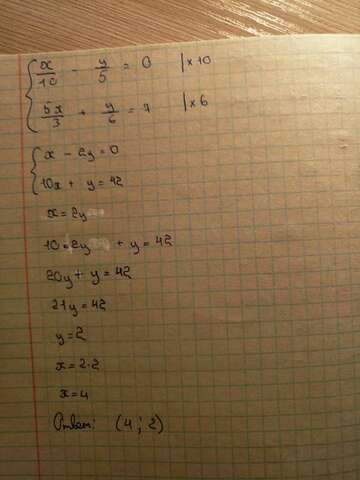 x/10 - y/5 = 0 | x 10
5x/3 + y/6 = 7 | x 6
x - 2y = 0
10x + y = 42
x = 2y
10 = 2y + y = 42
20y + y = 42
21y = 42
y = 2
x = 2·2
x = 4
Ответ: (4; 2)